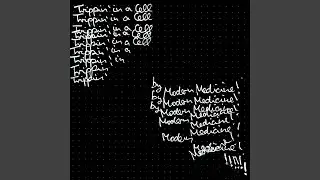 Trippin' in a Cell
Trippin' in a Cell
Trippin' in a Cell
Trippin' in a Cell
Trippin' in a Cell
Trippin' in a
Trippin' in
Trippin'
Trippin'
by Modern Medicine!
by Modern Medicine!
by Modern Medicine!
Modern Medicine!
Modern Medicine!
Medicine!
Medicine!
!!!!!